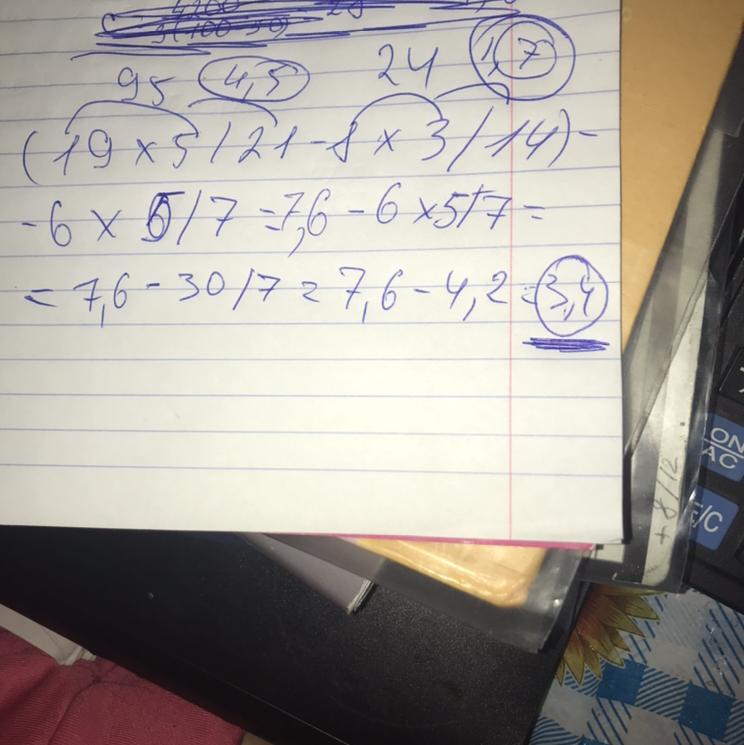 95 4,5 24 1,7
(19 x 5 / 21 - 8 x 3 / 14) -
- 6 x 5 / 7 = 7,6 - 6 x 5 / 7 =
= 7,6 - 30 / 7 = 7,6 - 4,2 = 3,4
ON
AC
E/C
+ 8/12